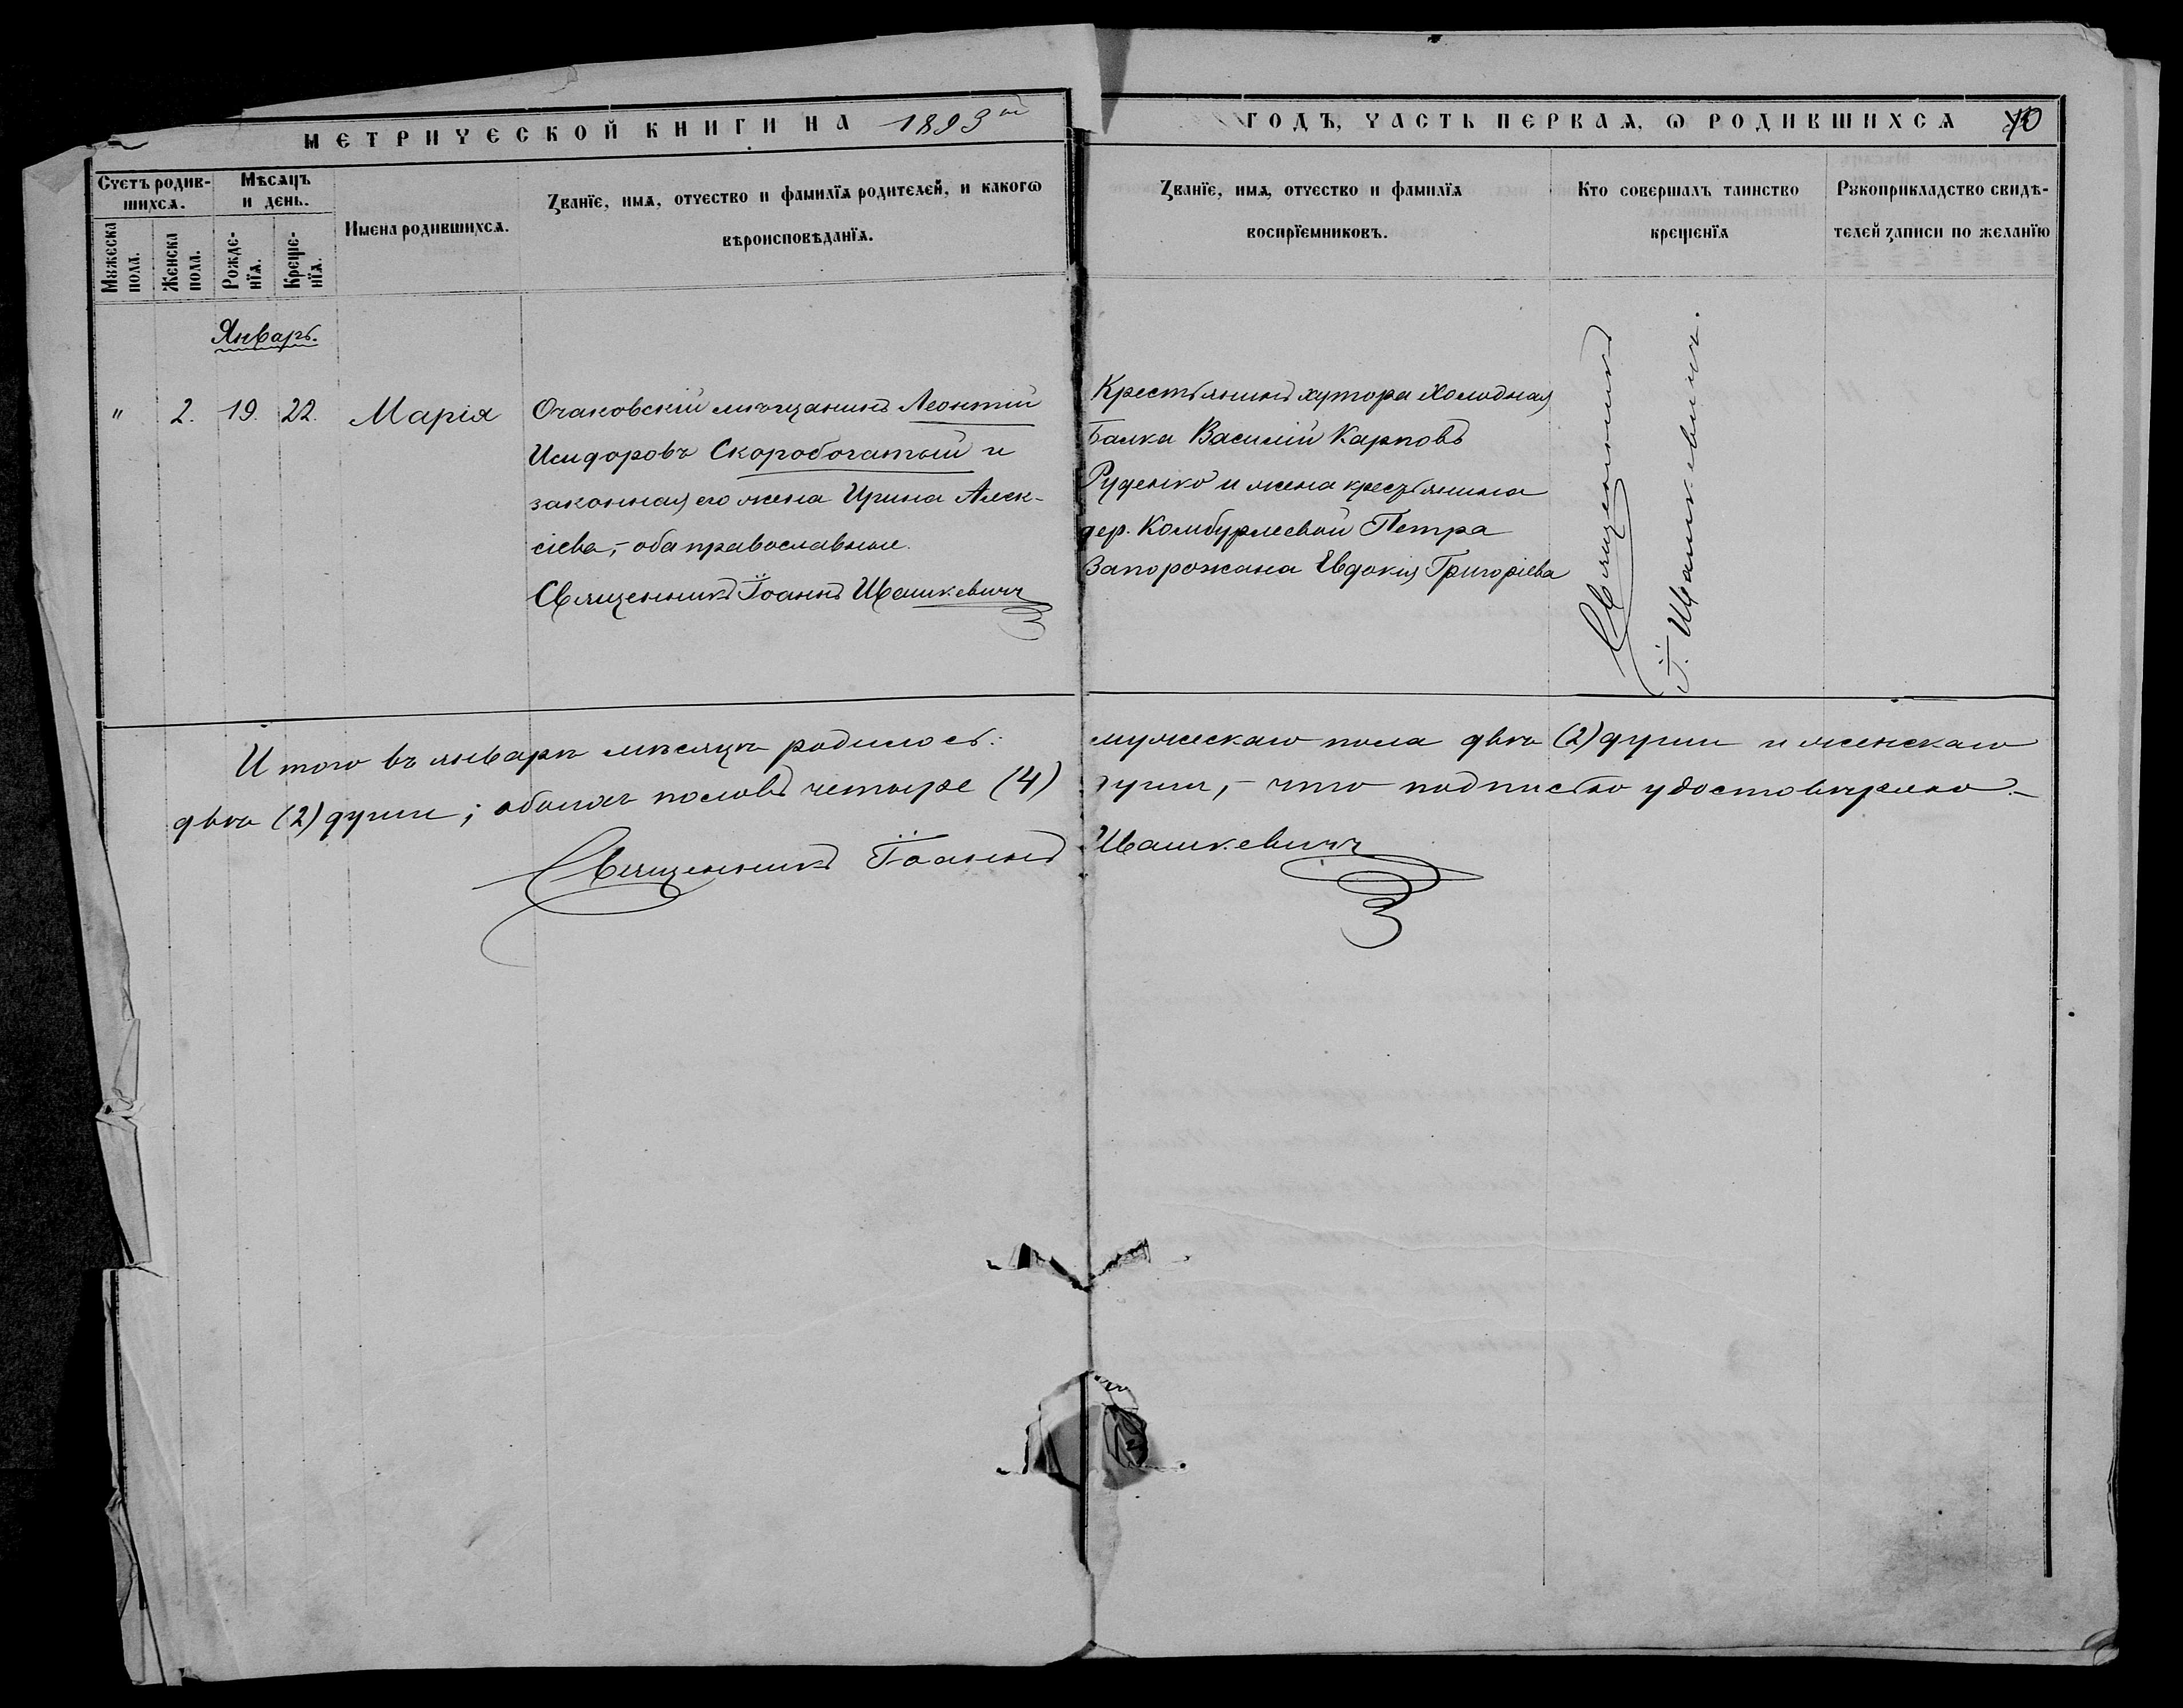 МЕТРИЧЕСКОЙ КНИГИ НА 1893 й
ГОДЪ, ЧАСТЬ ПЕРВАЯ, Ѡ РОДИВШИХСЯ
Счетъ родив-
шихся.
Мꙋжеска
пола.
Женска
пола.
Мѣсяцъ
и день.
Рожде-
нїя.
Креще-
нїя.
Имена родившихся.
Званїе, имя, отчество и фамилїя родителей, и какогѡ
вѣроисповѣданїя.
Званїе, имя, отчество и фамилїя
воспрїемниковъ.
Кто совершалъ таинство
крещенїя
Рꙋкоприкладство свидѣ-
телей записи по желанїю
Январь.
" 2. 19. 22. Марія
Очаковскій мѣщанинъ Леонтій
Исидоровъ Скоробогатый и
законная его жена Ирина Алек-
сіева, – оба православные.
Священникъ Іоаннъ Ивашкевичъ
Крестьянинъ хутора Холодная
Балка Василій Карповъ
Руденко и жена крестьянина
дер. Комбурлеевой Петра
Запорожана Евдокія Григоріева
Священникъ
І. Ивашкевичъ.
Итого въ январѣ мѣсяцѣ родилось: мужескаго пола двѣ (2) души и женскаго
двѣ (2) души; обоихъ половъ четыре (4) души, – что подписью удостовѣряю. –
Священникъ Іоаннъ Ивашкевичъ